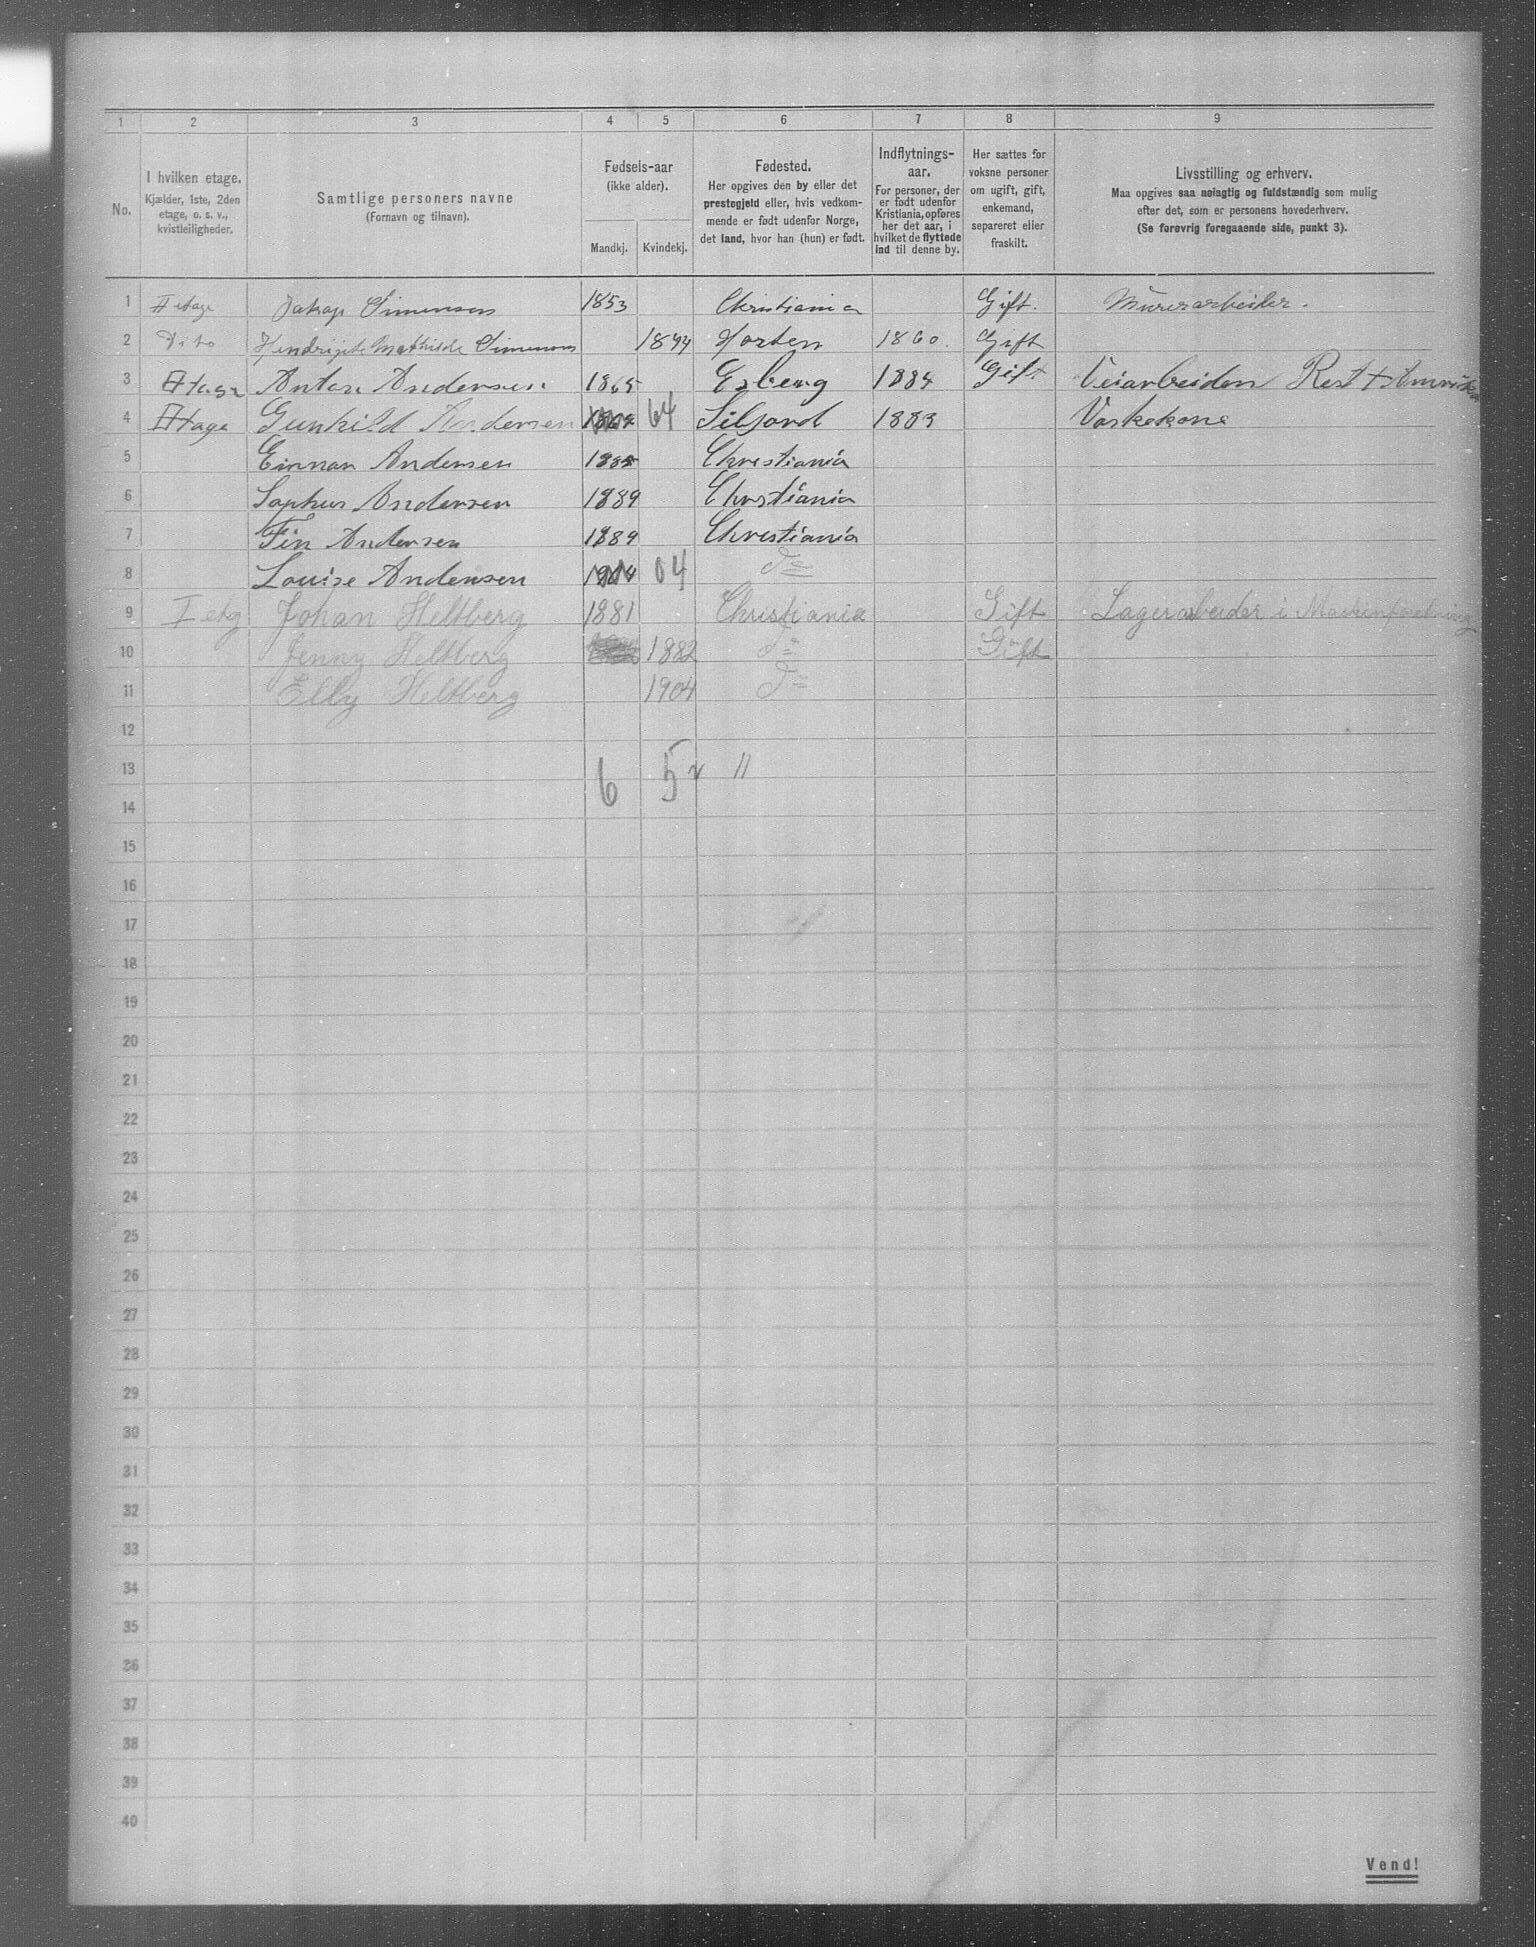 1 2 3 4 5 6 7 8 9
No.
I hvilken etage.
Kjælder, 1ste, 2den
etage, o. s. v.,
kvistleiligheder.
Samtlige personers navne
(Fornavn og tilnavn).
Fødsels-aar
(ikke alder).
Mandkj. Kvindekj.
Fødested.
Her opgives den by eller det
prestegjeld eller, hvis vedkom-
mende er født udenfor Norge,
det land, hvor han (hun) er født.
Indflytnings-
aar.
For personer, der
er født udenfor
Kristiania, opføres
her det aar, i
hvilket de flyttede
ind til denne by.
Her sættes for
voksne personer
om ugift, gift,
enkemand,
separeret eller
fraskilt.
Livsstilling og erhverv.
Maa opgives saa nøiagtig og fuldstændig som mulig
efter det, som er personens hovederhverv.
(Se forøvrig foregaaende side, punkt 3).
1 II etage Jakop Simensen 1853 Christiania Gift. Murerarbeider.
2 Dito Mathilde Simensen Horten 1860. Gift
3 Etage Anton Andersen 1865 Esberg 1884 Gift Veiarbeiden Rest + Amrika
4 Etage Gunhild Andersen 64 Siljord 1883 Vaskekone
5 Einnar Andersen 1885 Christiania
6 Sophus Andersen 1889 Chrstiania
7 Fin Andersen 1889 Christiania
8 Louise Andersen 04 Do
9 I etg Johan Heltberg 1881 Christiania Gift Lagerarbeider i
10 Jenny Heltberg 1882 Do Gift
11 Elly Heltberg 1904 Do
12
13 6 5 11
14
15
16
17
18
19
20
21
22
23
24
25
26
27
28
29
30
31
32
33
34
35
36
37
38
39
40
Vend!